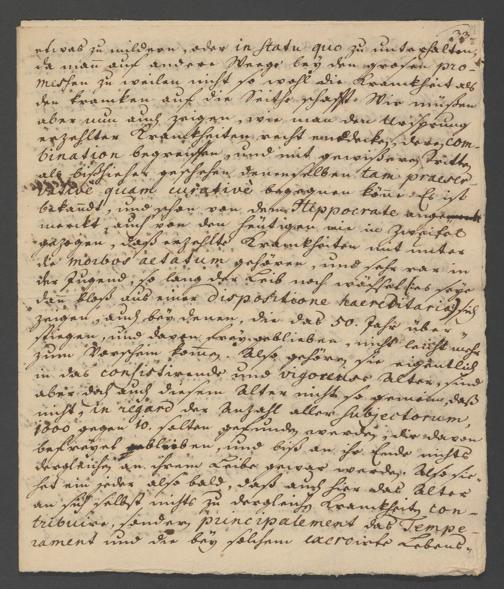 33.
etwas zu mildern, oder in statu quo zu unterhalten,
da man auf andere Weege bey den grosen pro-
messen zu weilen nicht so wohl die Kranckheit als
den Krancken auf die Seithe schafft. Wir müssen
aber nun auch zeigen, wie man den Ursprung
erzehlter Kranckheiten recht entdecken, deren com-
bination begreiffen, und mit gewissern Tritten
als bißhieher geschehen denenselben tam praeser-
vative quam curative begegnen könne. Es ist
bekandt, und schon von dem Hippocrate ange-
merckt, auch von den heutigen nie in Zweifel
gezogen, daß erzehlte Kranckheiten mit unter
die morbos aetatum gehören, und sehr rar in
der Jugend so lang der Leib noch
dan bloß aus einer dispositione haereditaria sich
zeigen, auch bey denen, die das 50. Jahr über-
stiegen, und davon frey geblieben, nicht leicht mehr
zum Vorschein kommen. Also gehören sie eigentlich
in das consistirende und vigorense Alter, sind
aber doch auch diesem Alter nicht so gemein, daß
nicht, in regard der Anzahl aller subjectorum,
1000 gegen 10. solten gefunden werden, die davon
befreyet geblieben, und biß an ihr Ende nichts
dergleichen an ihrem Leibe gewar werden. Also sie-
het ein jeder also bald, daß auch hier das Alter
an sich selbst nichts zu dergleichen Kranckheiten con-
tribuire, sondern principalement das Tempe-
rament und die bey solchem exercirte Lebens-